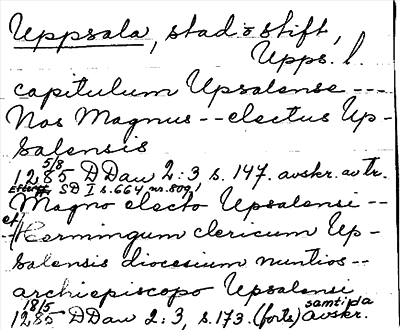 Uppsala, stad o stift,
Upps. l.
capitulum Upsalense ---
Nos Magnus -- electus Up-
salensis
5/8
1285 DDan 2:3 s. 147. avskr. av tr.
SD I s. 664, nr. 809!
Magno electo Upsalensi --
et
-- Hermingum clericum Up-
salensis diocesium nuntios --
archiepiscopo Upsalensi
18/5 samtida
1285 DDan 2:3, s. 173. (forts) avskr.